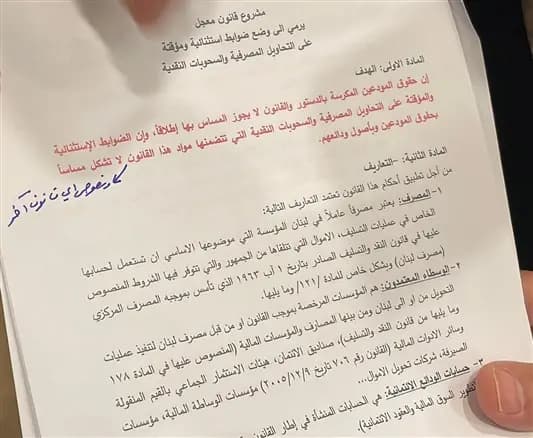 مشروع قانون معجل
يرمي الى وضع ضوابط استثنائية ومؤقتة
على التحاويل المصرفية والسحوبات النقدية
المادة الاولى: الهدف
إن حقوق المودعين المكرسة بالدستور والقانون لا يجوز المساس بها إطلاقاً، وإن الضوابط الإستثنائية
والمؤقتة على التحاويل المصرفية والسحوبات النقدية التي تتضمنها مواد هذا القانون لا تشكل مساساً
بحقوق المودعين وبأصول ودائعهم.
اي قانون آخر
المادة الثانية: -التعاريف
من أجل تطبيق أحكام هذا القانون تعتمد التعاريف التالية:
١- المصرف: يعتبر مصرفاً عاملاً في لبنان المؤسسة التي موضوعها الاساسي ان تستعمل لحسابها
الخاص في عمليات التسليف، الاموال التي تتلقاها من الجمهور والتي تتوفر فيها الشروط المنصوص
عليها في قانون النقد والتسليف الصادر بتاريخ ١ آب ١٩٦٣ الذي تأسس بموجبه المصرف المركزي
(مصرف لبنان) وبشكل خاص للمادة /١٢١/ وما يليها.
٢- الوسطاء المعتمدون: هم المؤسسات المرخصة بموجب القانون او من قبل مصرف لبنان لتنفيذ عمليات
التحويل من او الى لبنان ومن بينها المصارف والمؤسسات المالية (المنصوص عليها في المادة ١٧٨
وما يليها من قانون النقد والتسليف)، صناديق الائتمان، هيئات الاستثمار الجماعي بالقيم المنقولة
وسائر الادوات المالية (القانون رقم ٧٠٦ تاريخ ٢٠٠٥/١٢/٩) مؤسسات الوساطة المالية، مؤسسات
الصيرفة، شركات تحويل الاموال...
٣- حسابات الودائع الائتمانية: هي الحسابات المنشأة في إطار القانون
السوق المالية والعقود الائتمانية).